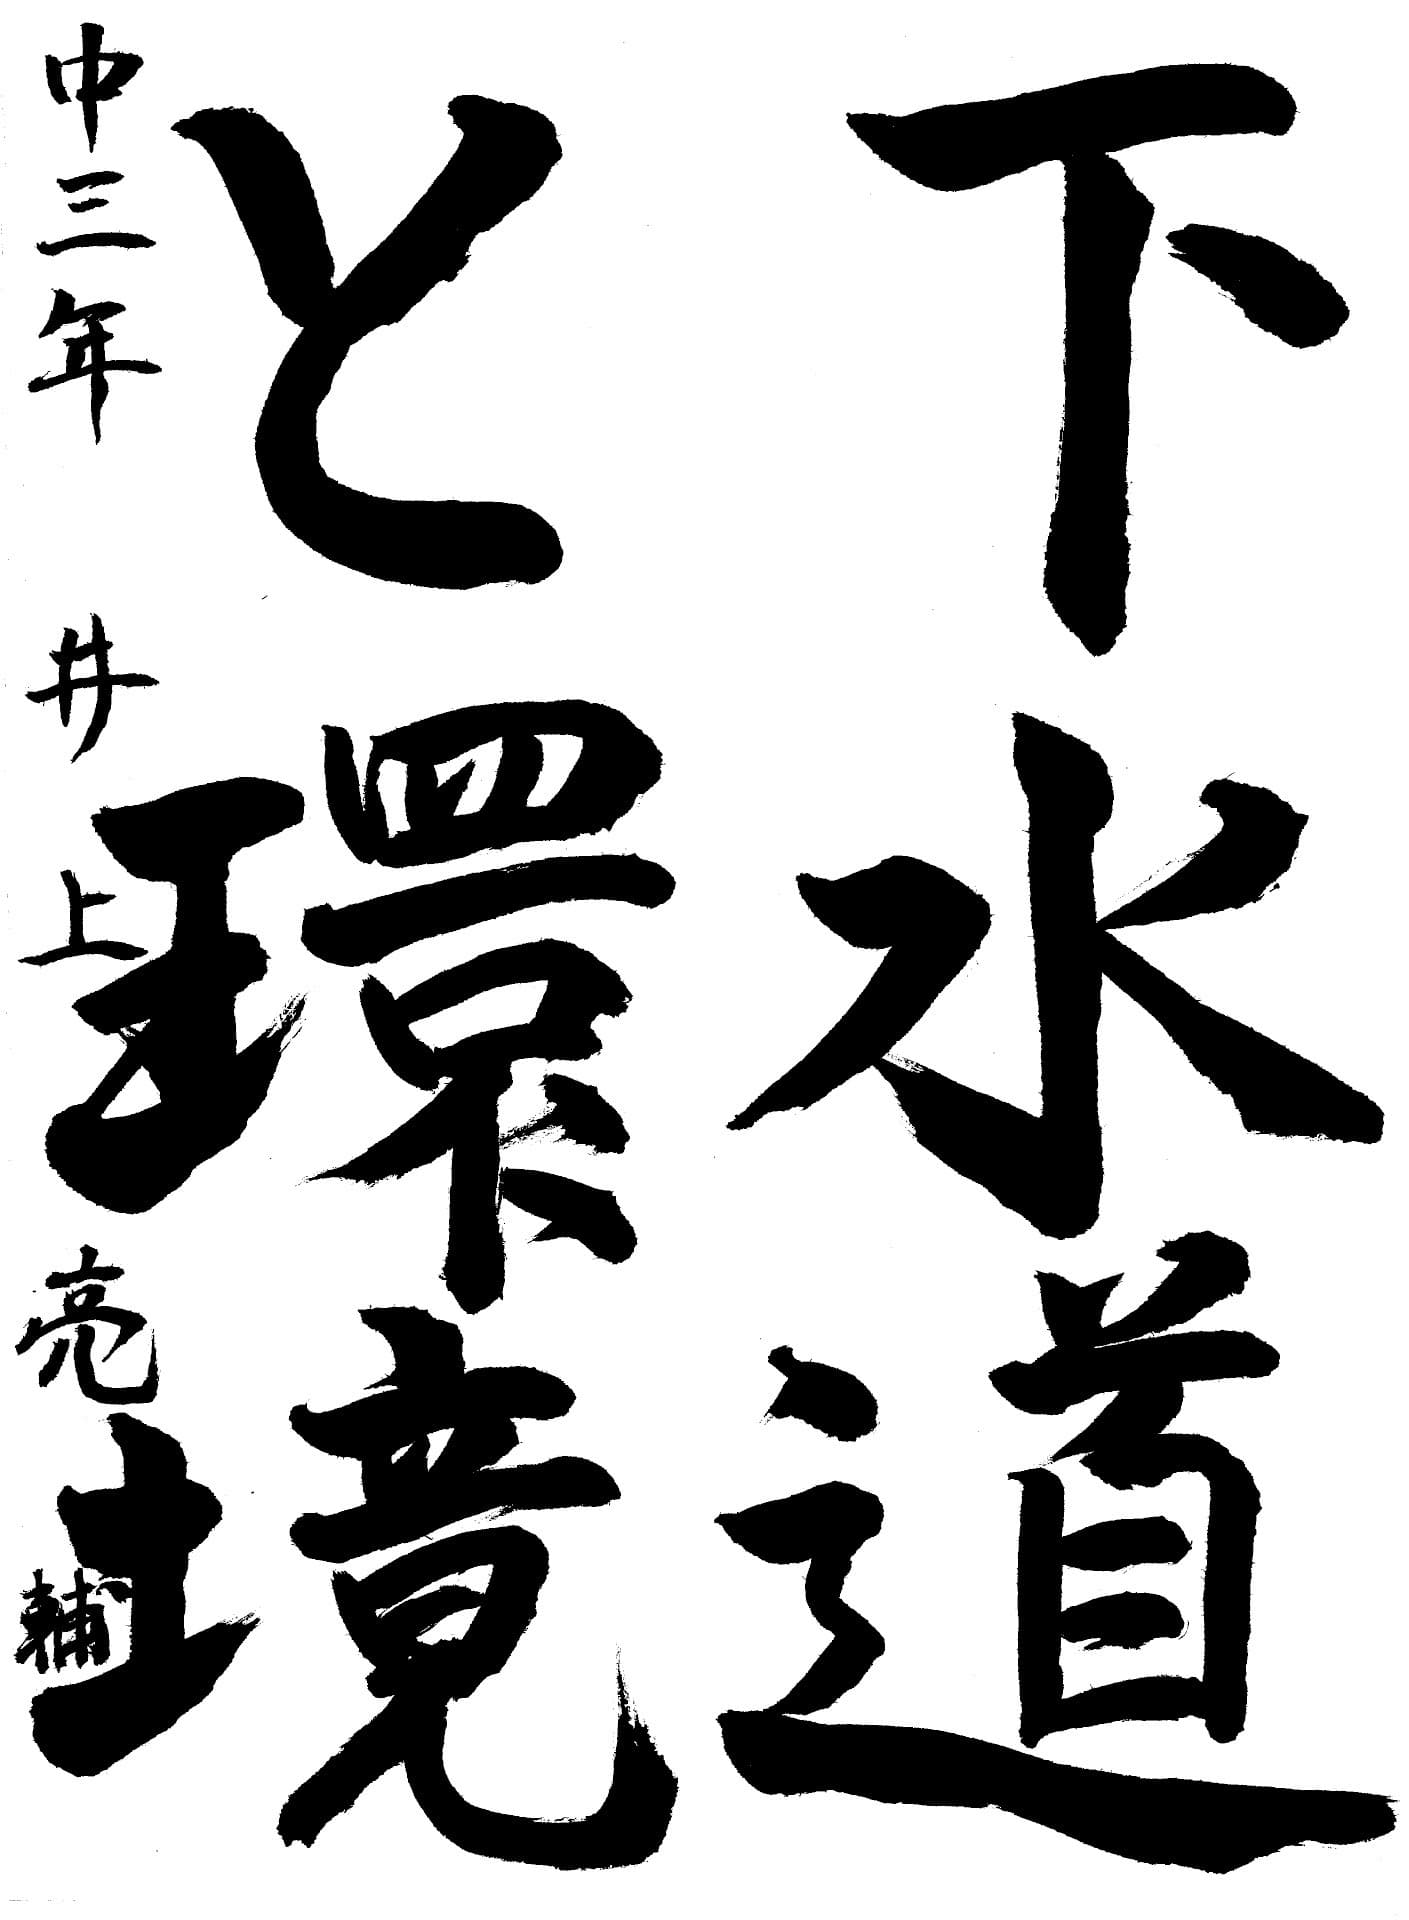 下水道
と環境
中三年 井上亮輔